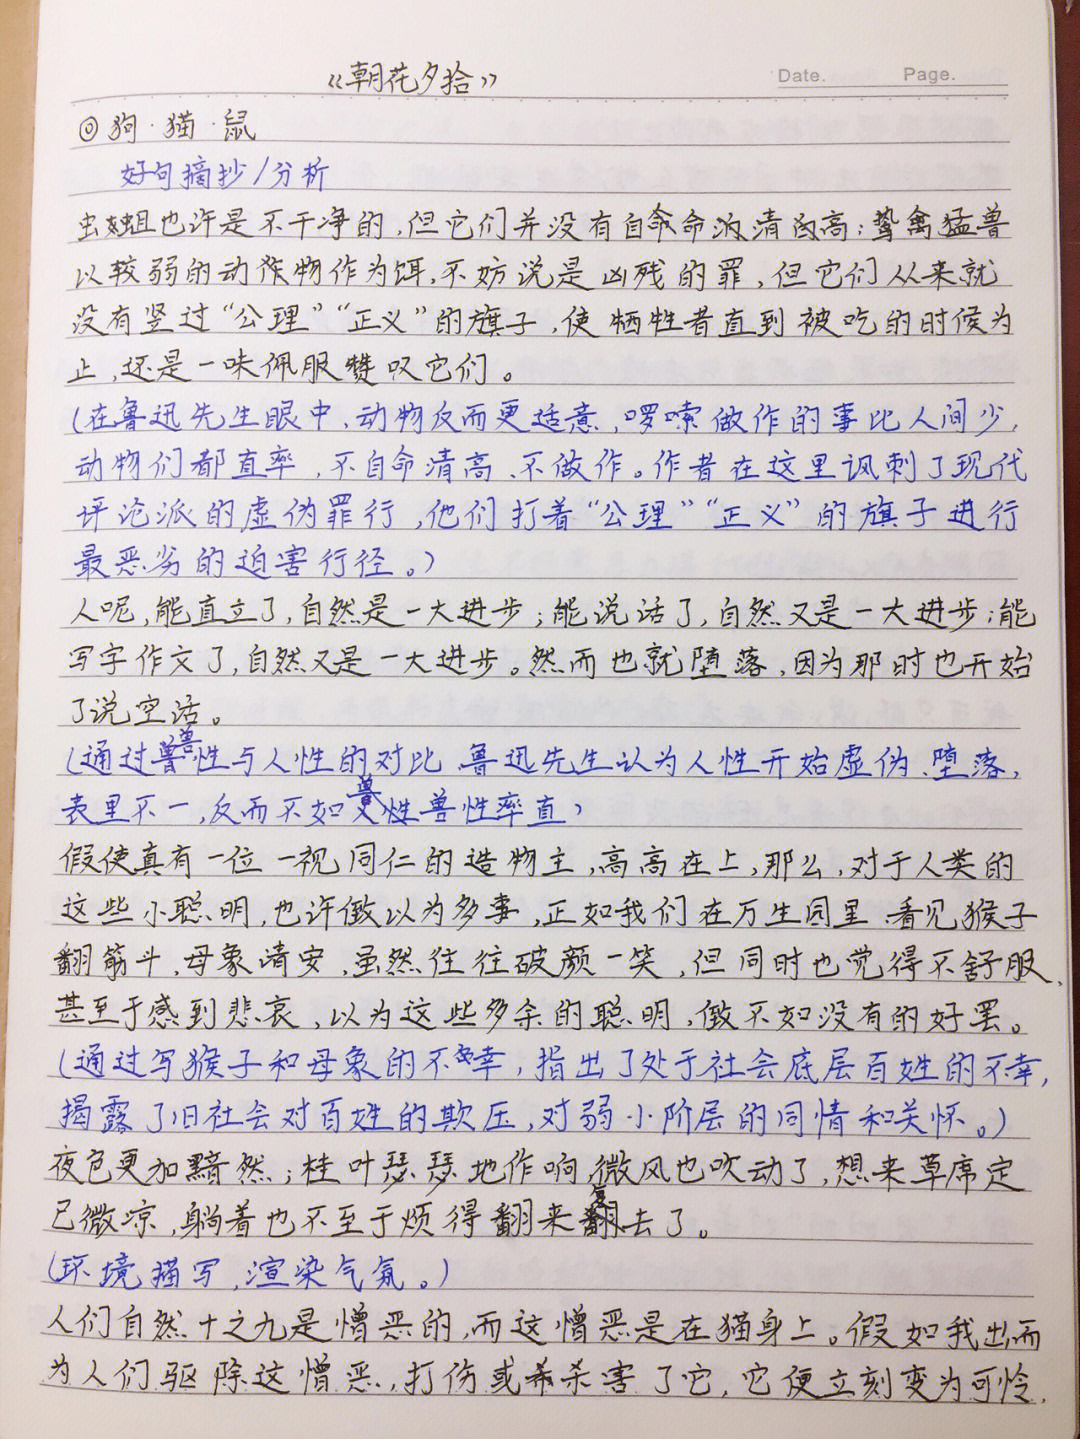 《朝花夕拾》
Date. Page.
◎狗·猫·鼠
好句摘抄/分析
虫蛆也许是不干净的,但它们并没有自命清高;鸷禽猛兽
以较弱的动物作为饵,不妨说是凶残的罢,但它们从来就
没有竖过“公理”“正义”的旗子,使牺牲者直到被吃的时候为
止,还是一味佩服赞叹它们。
(在鲁迅先生眼中,动物反而更适意,啰嗦做作的事比人间少,
动物们都直率,不自命清高、不做作。作者在这里讽刺了现代
评论派的虚伪罪行,他们打着“公理”“正义”的旗子进行
最恶劣的迫害行径。)
人呢,能直立了,自然是一大进步;能说话了,自然又是一大进步;能
写字作文了,自然又是一大进步。然而也就堕落,因为那时也开始
了说空话。
(通过兽性与人性的对比,鲁迅先生认为人性开始虚伪、堕落,
表里不一,反而不如兽性兽性率直)
假使真有一位一视同仁的造物主,高高在上,那么,对于人类的
这些小聪明,也许倒以为多事,正如我们在万生园里,看见猴子
翻筋斗,母象请安,虽然往往破颜一笑,但同时也觉得不舒服,
甚至于感到悲哀,以为这些多余的聪明,倒不如没有的好罢。
(通过写猴子和母象的不幸,指出了处于社会底层百姓的不幸,
揭露了旧社会对百姓的欺压,对弱小阶层的同情和关怀。)
夜色更加黯然;桂叶瑟瑟地作响,微风也吹动了,想来草席定
已微凉,躺着也不至于烦得翻来复去了。
(环境描写,渲染气氛。)
人们自然十之九是憎恶的,而这憎恶是在猫身上。假如我出而
为人们驱除这憎恶,打伤或杀害了它,它便立刻变为可怜,